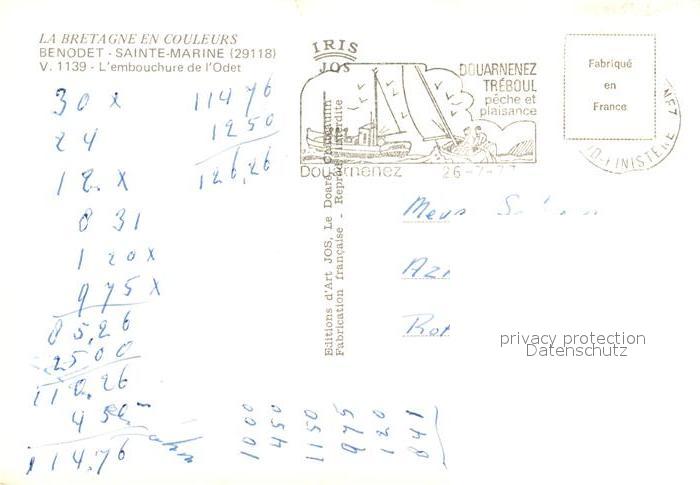 LA BRETAGNE EN COULEURS
BENODET - SAINTE-MARINE (29118)
V. 1139 - L'embouchure de l'Odet
IRIS
JOS
DOUARNENEZ
TRÉBOUL
pêche et
plaisance
Douarnenez
26-7-77
Fabriqué
en
France
FINISTERE
Editions d'Art JOS, Le Doaré, Châteaulin
Fabrication française - Reprod. interdite
30 x
24
12 x
831
120 x
975 x
85,26
25 00
110,26
4 50
114,76
114 76
12 50
126,26
1000
450
1150
975
120
841
privacy protection
Datenschutz